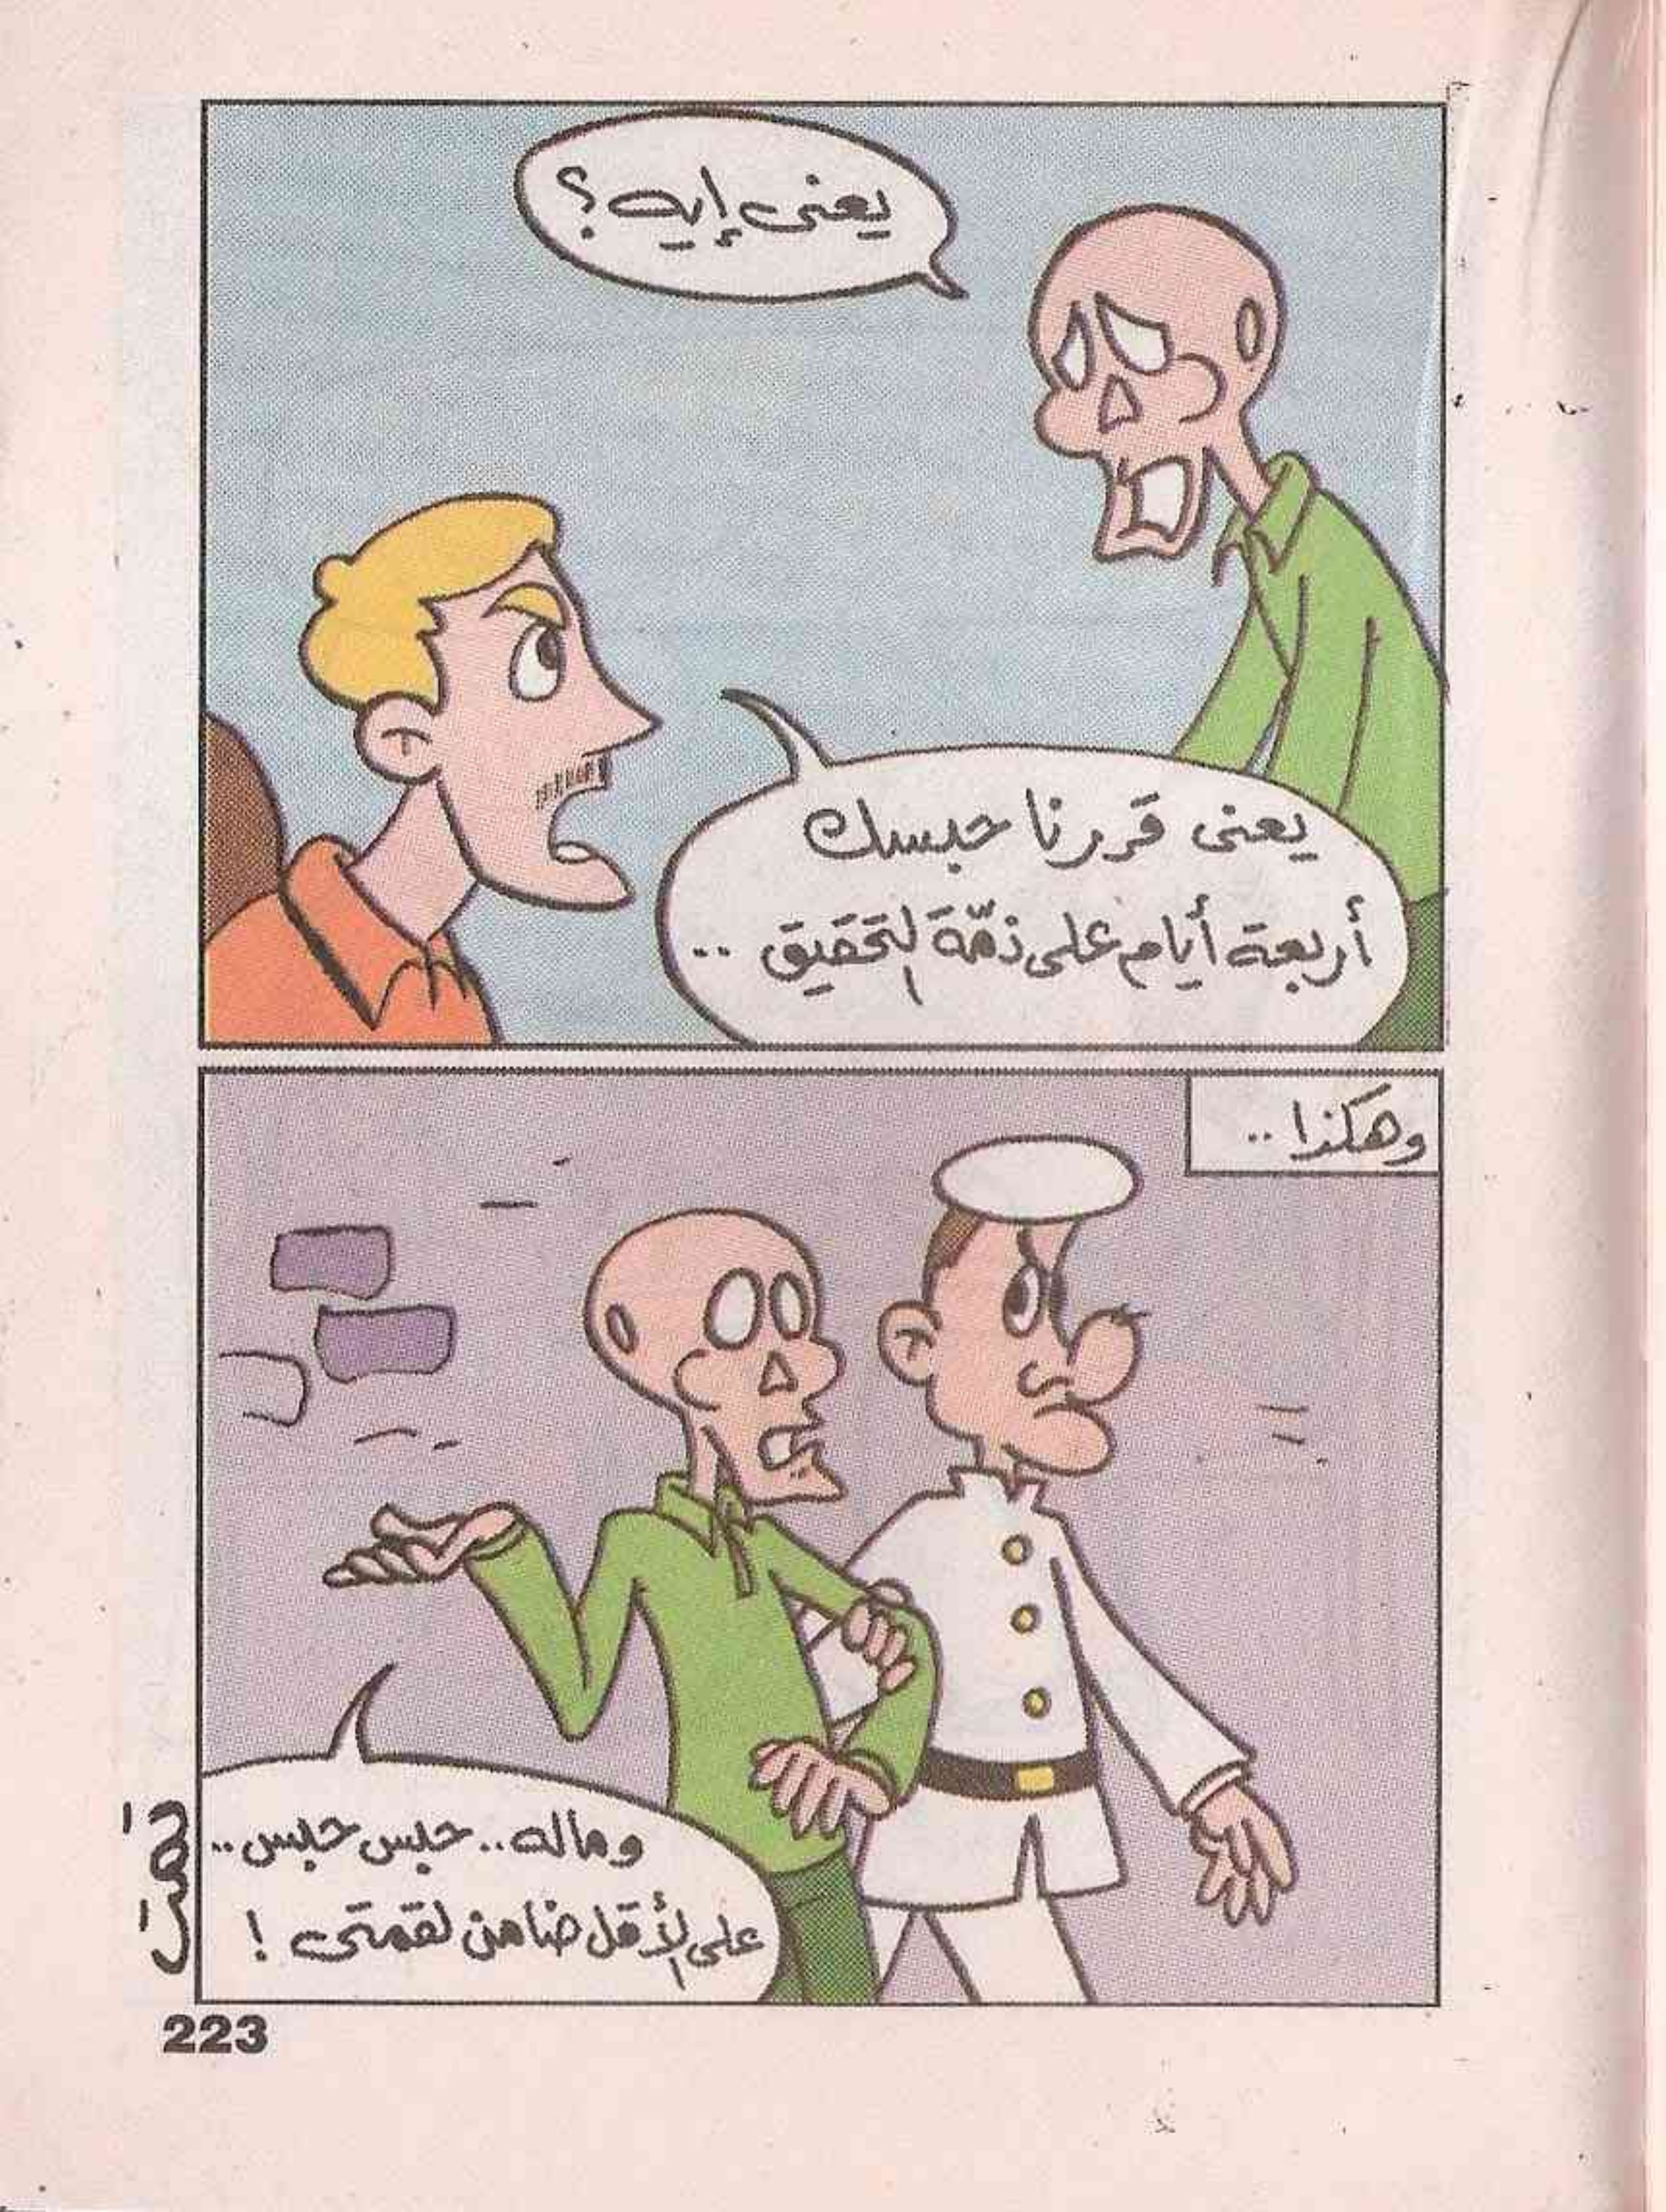 يعنى إيه؟
يعنى قررنا حبسك
أربعة أيام على ذمّة التحقيق ..
وهكذا ..
وماله .. حبس حبس ..
على الأقل ضامن لقمتى !
تمت
223